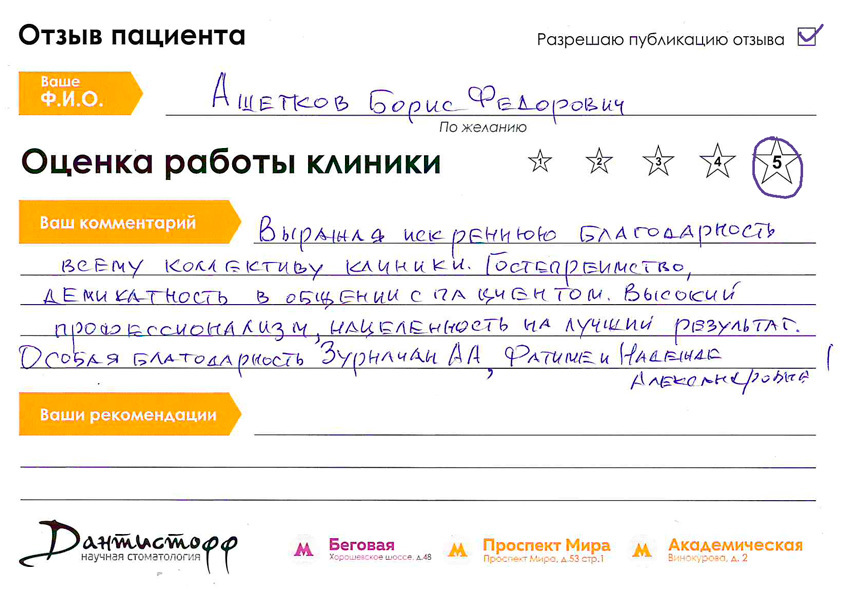 Отзыв пациента
Разрешаю публикацию отзыва
Ваше
Ф.И.О.
Ашетков Борис Федорович
По желанию
Оценка работы клиники
1 2 3 4 5
Ваш комментарий
искреннюю благодарность
всему коллективу клиники. Гостеприимство,
деликатность в общении с пациентом. Высокий
профессионализм, нацеленность на лучший результат.
Особая благодарность АА, Фатиме и Надежде
Александровне!
Ваши рекомендации
Дантистофф
научная стоматология
Беговая
Хорошевское шоссе, д.48
Проспект Мира
Проспект Мира, д.53 стр.1
Академическая
Винокурова, д. 2